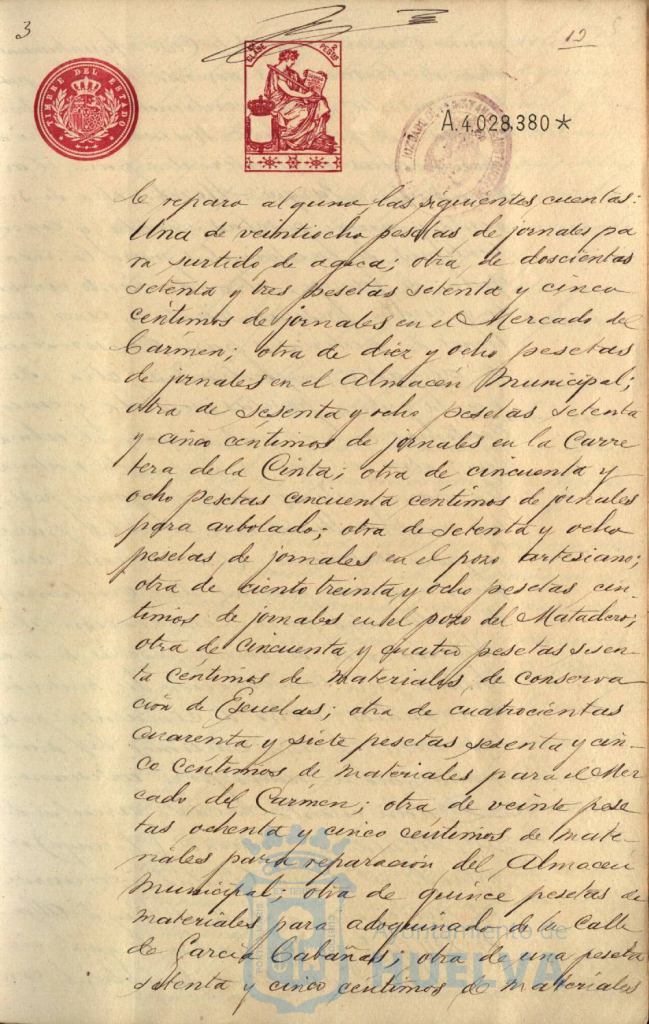 3
12
CLASE PESETAS
TIMBRE DEL ESTADO
A.4.028.380*
le reparo alguno las siguientes cuentas:
Una de veintiocho pesetas de jornales pa
ra surtido de agua; otra de doscientas
setenta y tres pesetas setenta y cinco
céntimos de jornales en el Mercado del
Carmen; otra de diez y ocho pesetas
de jornales en el Almacén Municipal;
otra de sesenta y ocho pesetas setenta
y cinco céntimos de jornales en la Carre
tera de la Cinta; otra de cincuenta y
ocho pesetas cincuenta céntimos de jornales
para arbolado; otra de setenta y ocho
pesetas de jornales en el pozo artesiano;
otra de ciento treinta y ocho pesetas cin-
timios de jornales en el pozo del Matadero;
otra de cincuenta y cuatro pesetas sesen-
ta céntimos de materiales de conserva
ción de Escuelas; otra de cuatrocientas
cuarenta y siete pesetas sesenta y cin-
co céntimos de materiales para el Mer
cado del Carmen; otra de veinte pese
tas ochenta y cinco céntimos de mate-
riales para reparación del Almacen
Municipal; otra de quince pesetas de
materiales para adoquinado de la calle
de García Cabañas; otra de una peseta
setenta y cinco centimos de materiales
Ayuntamiento de
HUELVA